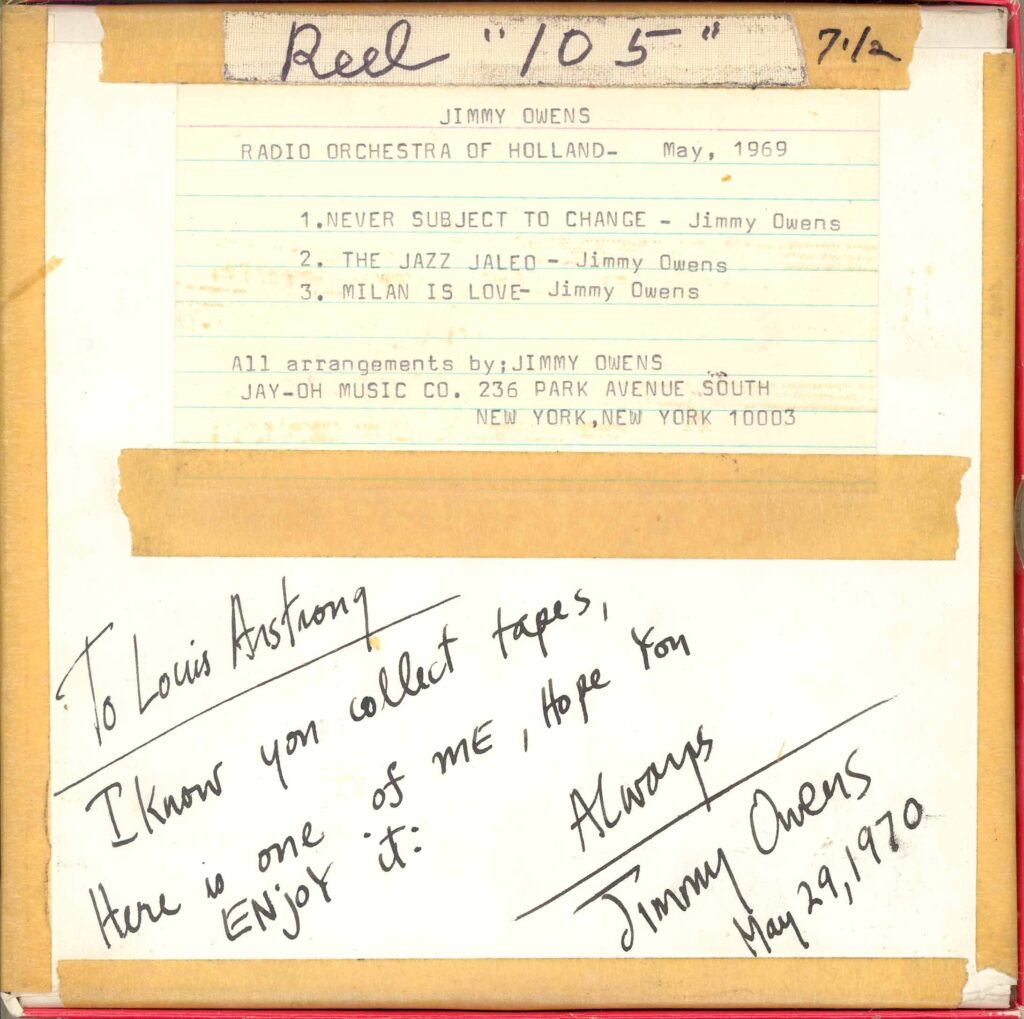 Reel "105" 7 1/2
JIMMY OWENS
RADIO ORCHESTRA OF HOLLAND- May, 1969
1.NEVER SUBJECT TO CHANGE - Jimmy Owens
2. THE JAZZ JALEO - Jimmy Owens
3. MILAN IS LOVE- Jimmy Owens
All arrangements by;JIMMY OWENS
JAY-OH MUSIC CO. 236 PARK AVENUE SOUTH
NEW YORK,NEW YORK 10003
To Louis Arstrong
I Know you collect tapes,
Here is one of ME, Hope You
ENJOY it:
Always
Jimmy Owens
May 29, 1970